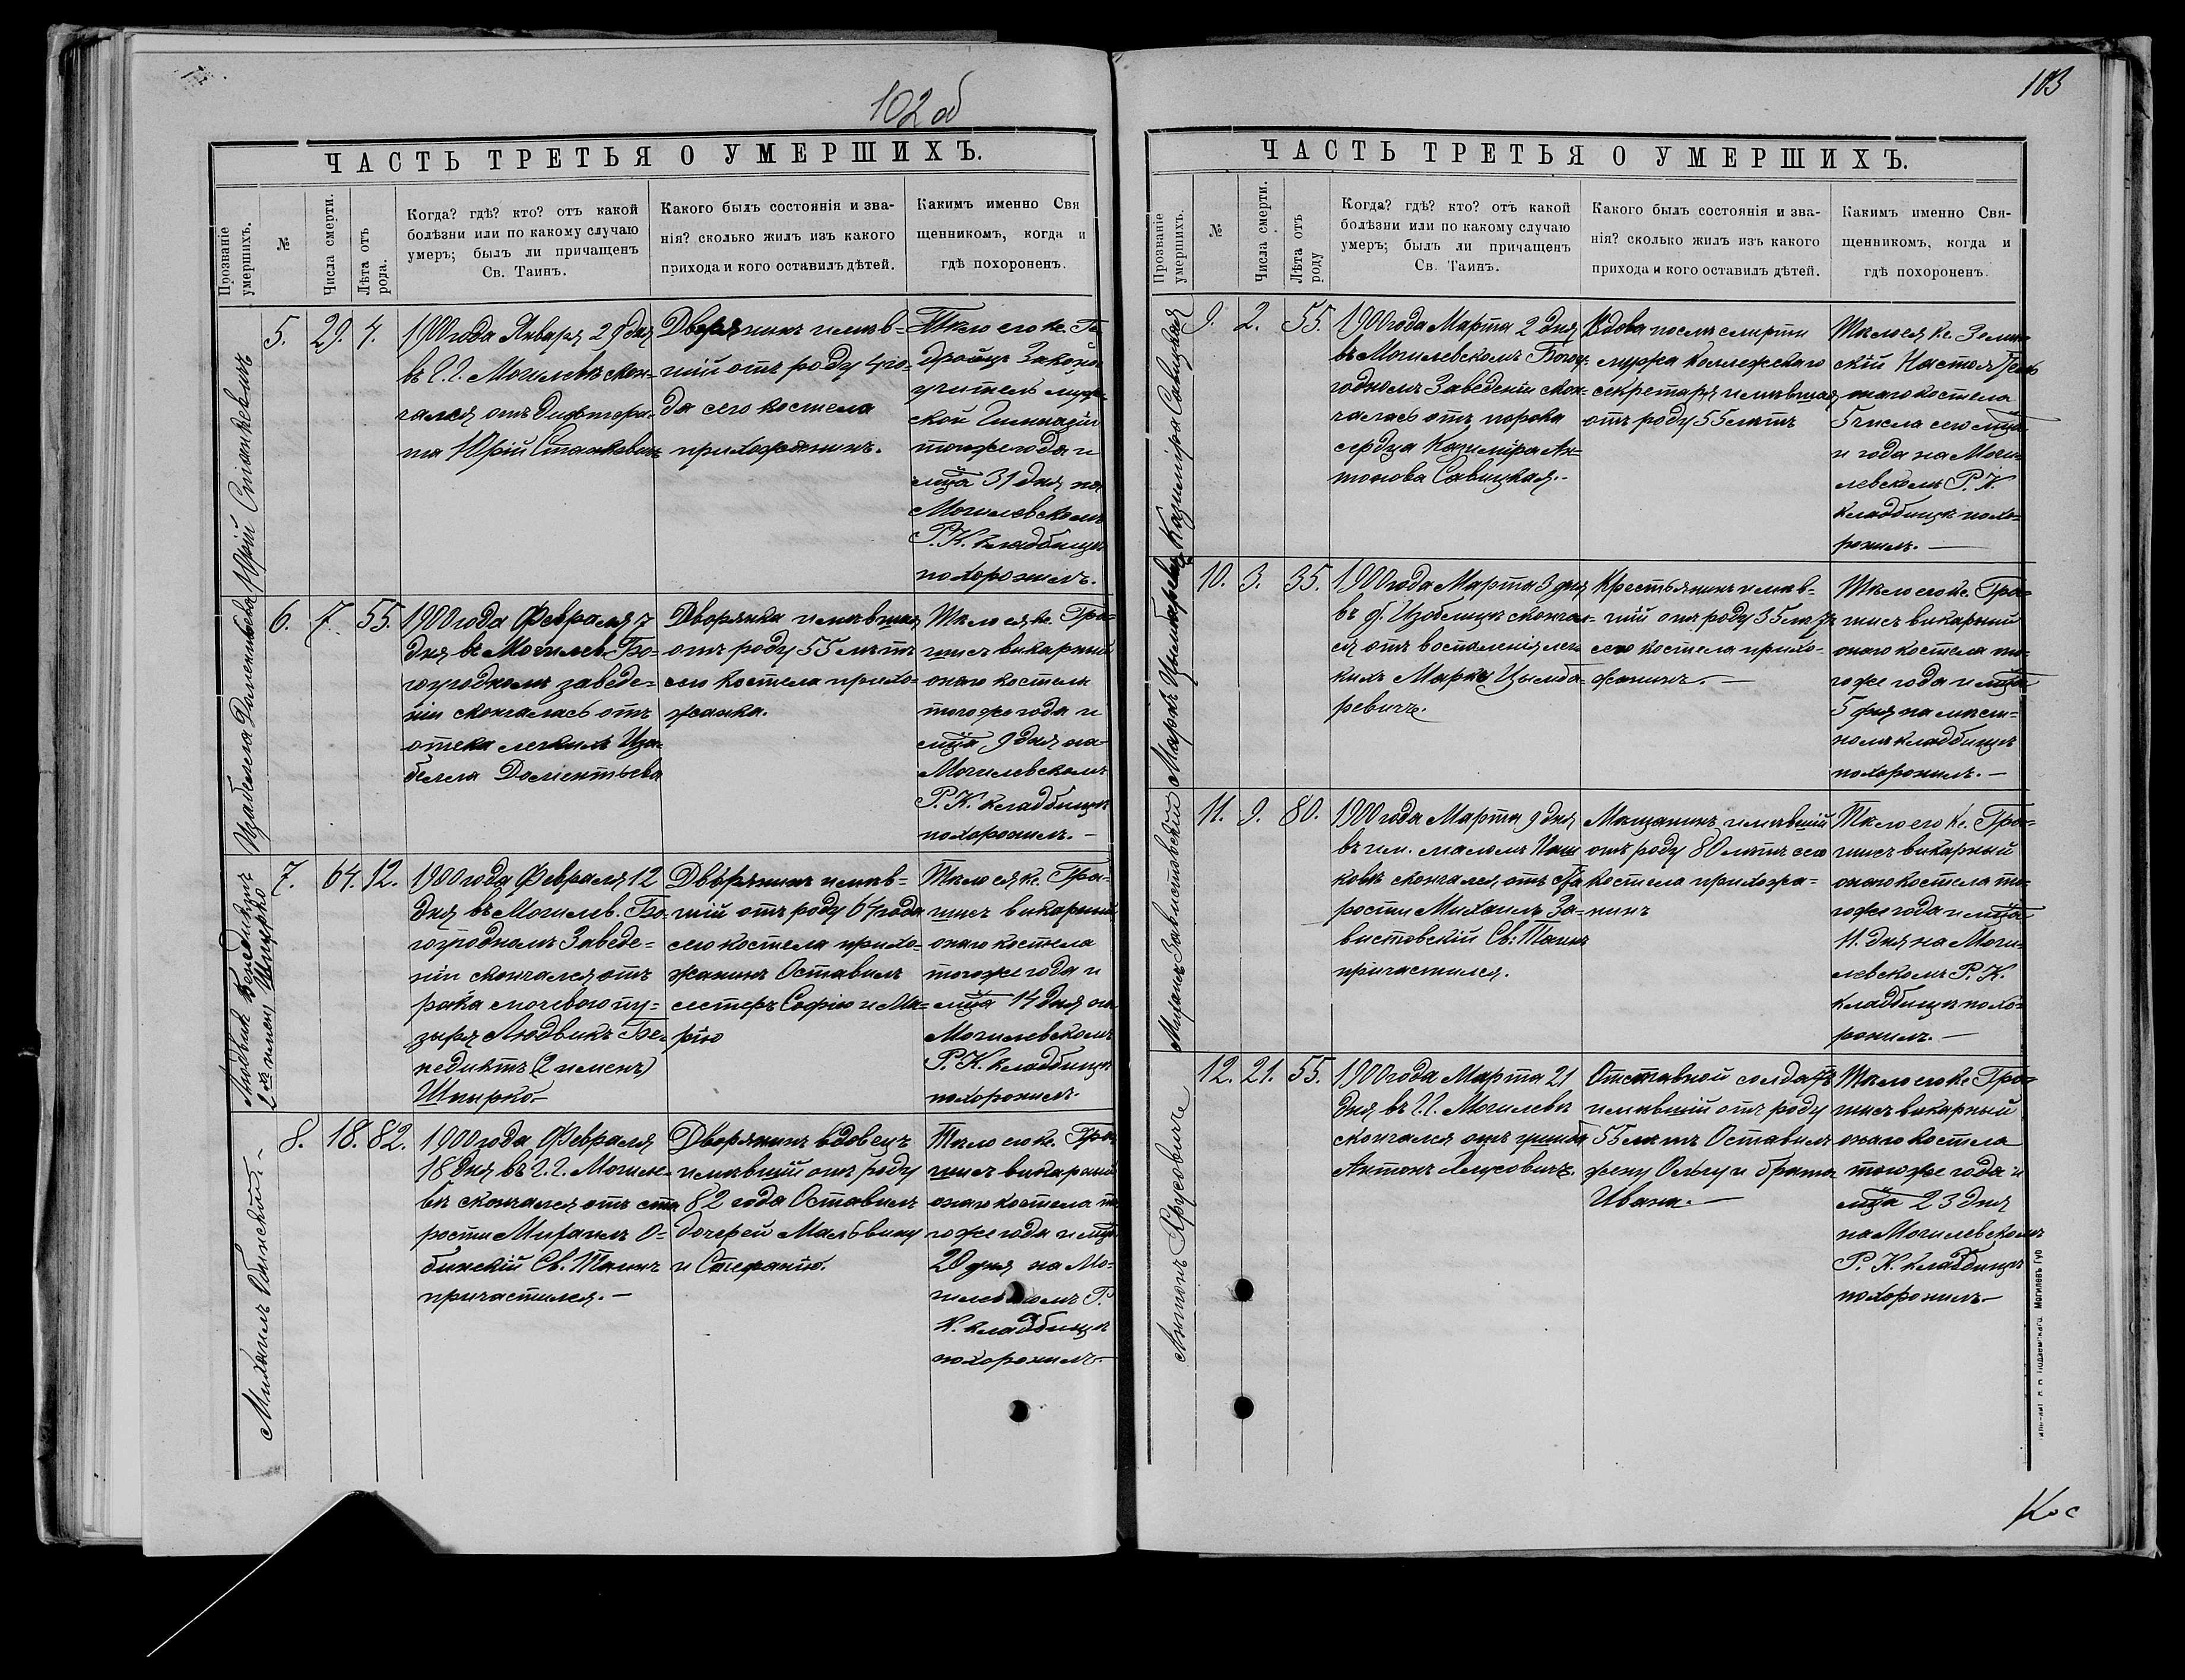 102 об
ЧАСТЬ ТРЕТЬЯ О УМЕРШИХЪ.
Прозваніе
умершихъ.
№
Числа смерти.
Лѣта отъ
рода.
Когда? гдѣ? кто? отъ какой
болѣзни или по какому случаю
умеръ; былъ ли причащенъ
Св. Таинъ.
Какого былъ состоянія и зва-
нія? сколько жилъ изъ какого
прихода и кого оставилъ дѣтей.
Какимъ именно Свя
щенникомъ, когда и
гдѣ похороненъ.
Юрій Станкевичъ
5.
29.
4.
1900 года Января 29 дня
въ Г. Г. Могилевѣ скон-
чался отъ дифтери-
та Юрій Станкевичъ
Дворянинъ имѣв-
шій отъ роду 4 го-
да сего костела
прихожанинъ.
Тѣло его Кс.
Законо
учитель муж-
ской Гимназіи
тогоже года и
мца 31 дня на
Могилевскомъ
Р. К. кладбищѣ
похоронилъ.
Изабелла Доментьева
6.
7.
55.
1900 года Февраля 7
дня въ Могилев. Бо-
гоугодномъ заведе-
ніи скончалась отъ
отека легкихъ Иза-
белла Доментьева
Дворянка имѣвшая
отъ роду 55 лѣтъ
сего костела прихо-
жанка.
Тѣло ея Кс. Гро-
мисъ викарный
онаго костела
тогоже года и
мца 9 дня на
Могилевскомъ
Р. К. кладбищѣ
похоронилъ. -
Людвикъ Бенедиктъ
2хъ именъ Шпырко
7.
64.
12.
1900 года Февраля 12
дня въ Могилев. Бо-
гоугодномъ Заведе-
ніи скончался отъ
рака мочевого пу-
зыря Людвикъ Бе-
недиктъ (2 именъ)
Шпырко
Дворянинъ имѣв-
шій отъ роду 64 года
сего костела прихо-
жанинъ Оставилъ
сестеръ Софію и Ма-
рію
Тѣло ея Кс. Гро-
мисъ викарный
онаго костела
тогоже года и
мца 14 дня на
Могилевскомъ
Р. К. кладбищѣ
похоронилъ.
Михаилъ Обинскій
8.
18.
82.
1900 года Февраля
18 дня въ Г. Г. Могиле-
вѣ скончался отъ ста
рости Михаилъ О-
бинскій Св. Таинъ
причастился. -
Дворянинъ вдовецъ
имѣвшій отъ роду
82 года Оставилъ
дочерей Мальвину
и Стефанію.
Тѣло его Кс. Гро-
мисъ викарный
онаго костела то
гоже года и мца
20 дня на Мо-
гилевскомъ Р.
К. кладбищѣ
похоронилъ. -
103
ЧАСТЬ ТРЕТЬЯ О УМЕРШИХЪ.
Прозваніе
умершихъ.
№
Числа смерти.
Лѣта отъ
роду
Когда? гдѣ? кто? отъ какой
болѣзни или по какому случаю
умеръ; былъ ли причащенъ
Св. Таинъ.
Какого былъ состоянія и зва-
нія? сколько жилъ изъ какого
прихода и кого оставилъ дѣтей.
Какимъ именно Свя-
щенникомъ, когда и
гдѣ похороненъ.
Казиміра Савицкая
9.
2.
55.
1900 года Марта 2 дня
въ Могилевскомъ Богоу-
годномъ Заведеніи скон-
чалась отъ порока
сердца Казиміра Ан-
тонова Савицкая. -
Вдова послѣ смерти
мужа Коллежскаго
секретаря имѣвшая
отъ роду 55 лѣтъ
Тѣло ея Кс.
Настоятель
онаго костела
5 числа сего мца
и года на Моги-
левскомъ Р. К.
кладбищѣ похо-
ронилъ. -
Маркъ Цымбаревичъ
10.
3.
35.
1900 года Марта 3 дня
въ д. скончал-
ся отъ воспаленія лег-
кихъ Маркъ Цымба-
ревичъ.
Крестьянинъ имѣв-
шій отъ роду 35 лѣтъ
сего костела прихо-
жанинъ. -
Тѣло его Кс. Гро-
мисъ викарный
онаго костела то-
гоже года и мца
5 дня на мѣст-
номъ кладбищѣ
похоронилъ. -
Михаилъ Завистовскій
11.
9.
80.
1900 года Марта 9 дня
въ им. маломъ
ковѣ скончался отъ ста
рости Михаилъ За-
вистовскій Св. Таинъ
причастился.
Мѣщанинъ имѣвшій
отъ роду 80 лѣтъ сего
костела прихожа-
нинъ
Тѣло его Кс. Гро-
мисъ викарный
онаго костела то-
гоже года и мца
11. дня на Моги-
левскомъ Р. К.
кладбищѣ похо-
ронилъ. -
Антонъ
12.
21.
55.
1900 года Марта 21
дня въ Г. Г. Могилевѣ
скончался отъ
Антонъ
Отставной солдатъ
имѣвшій отъ роду
55 лѣтъ Оставилъ
жену Ольгу и брата
Ивана. -
Тѣло его Кс. Гро-
мисъ викарный
онаго костела
тогоже года и
мца 23 дня
на Могилевскомъ
Р. К. кладбищѣ
похоронилъ -
Могилевъ Губ
Кос